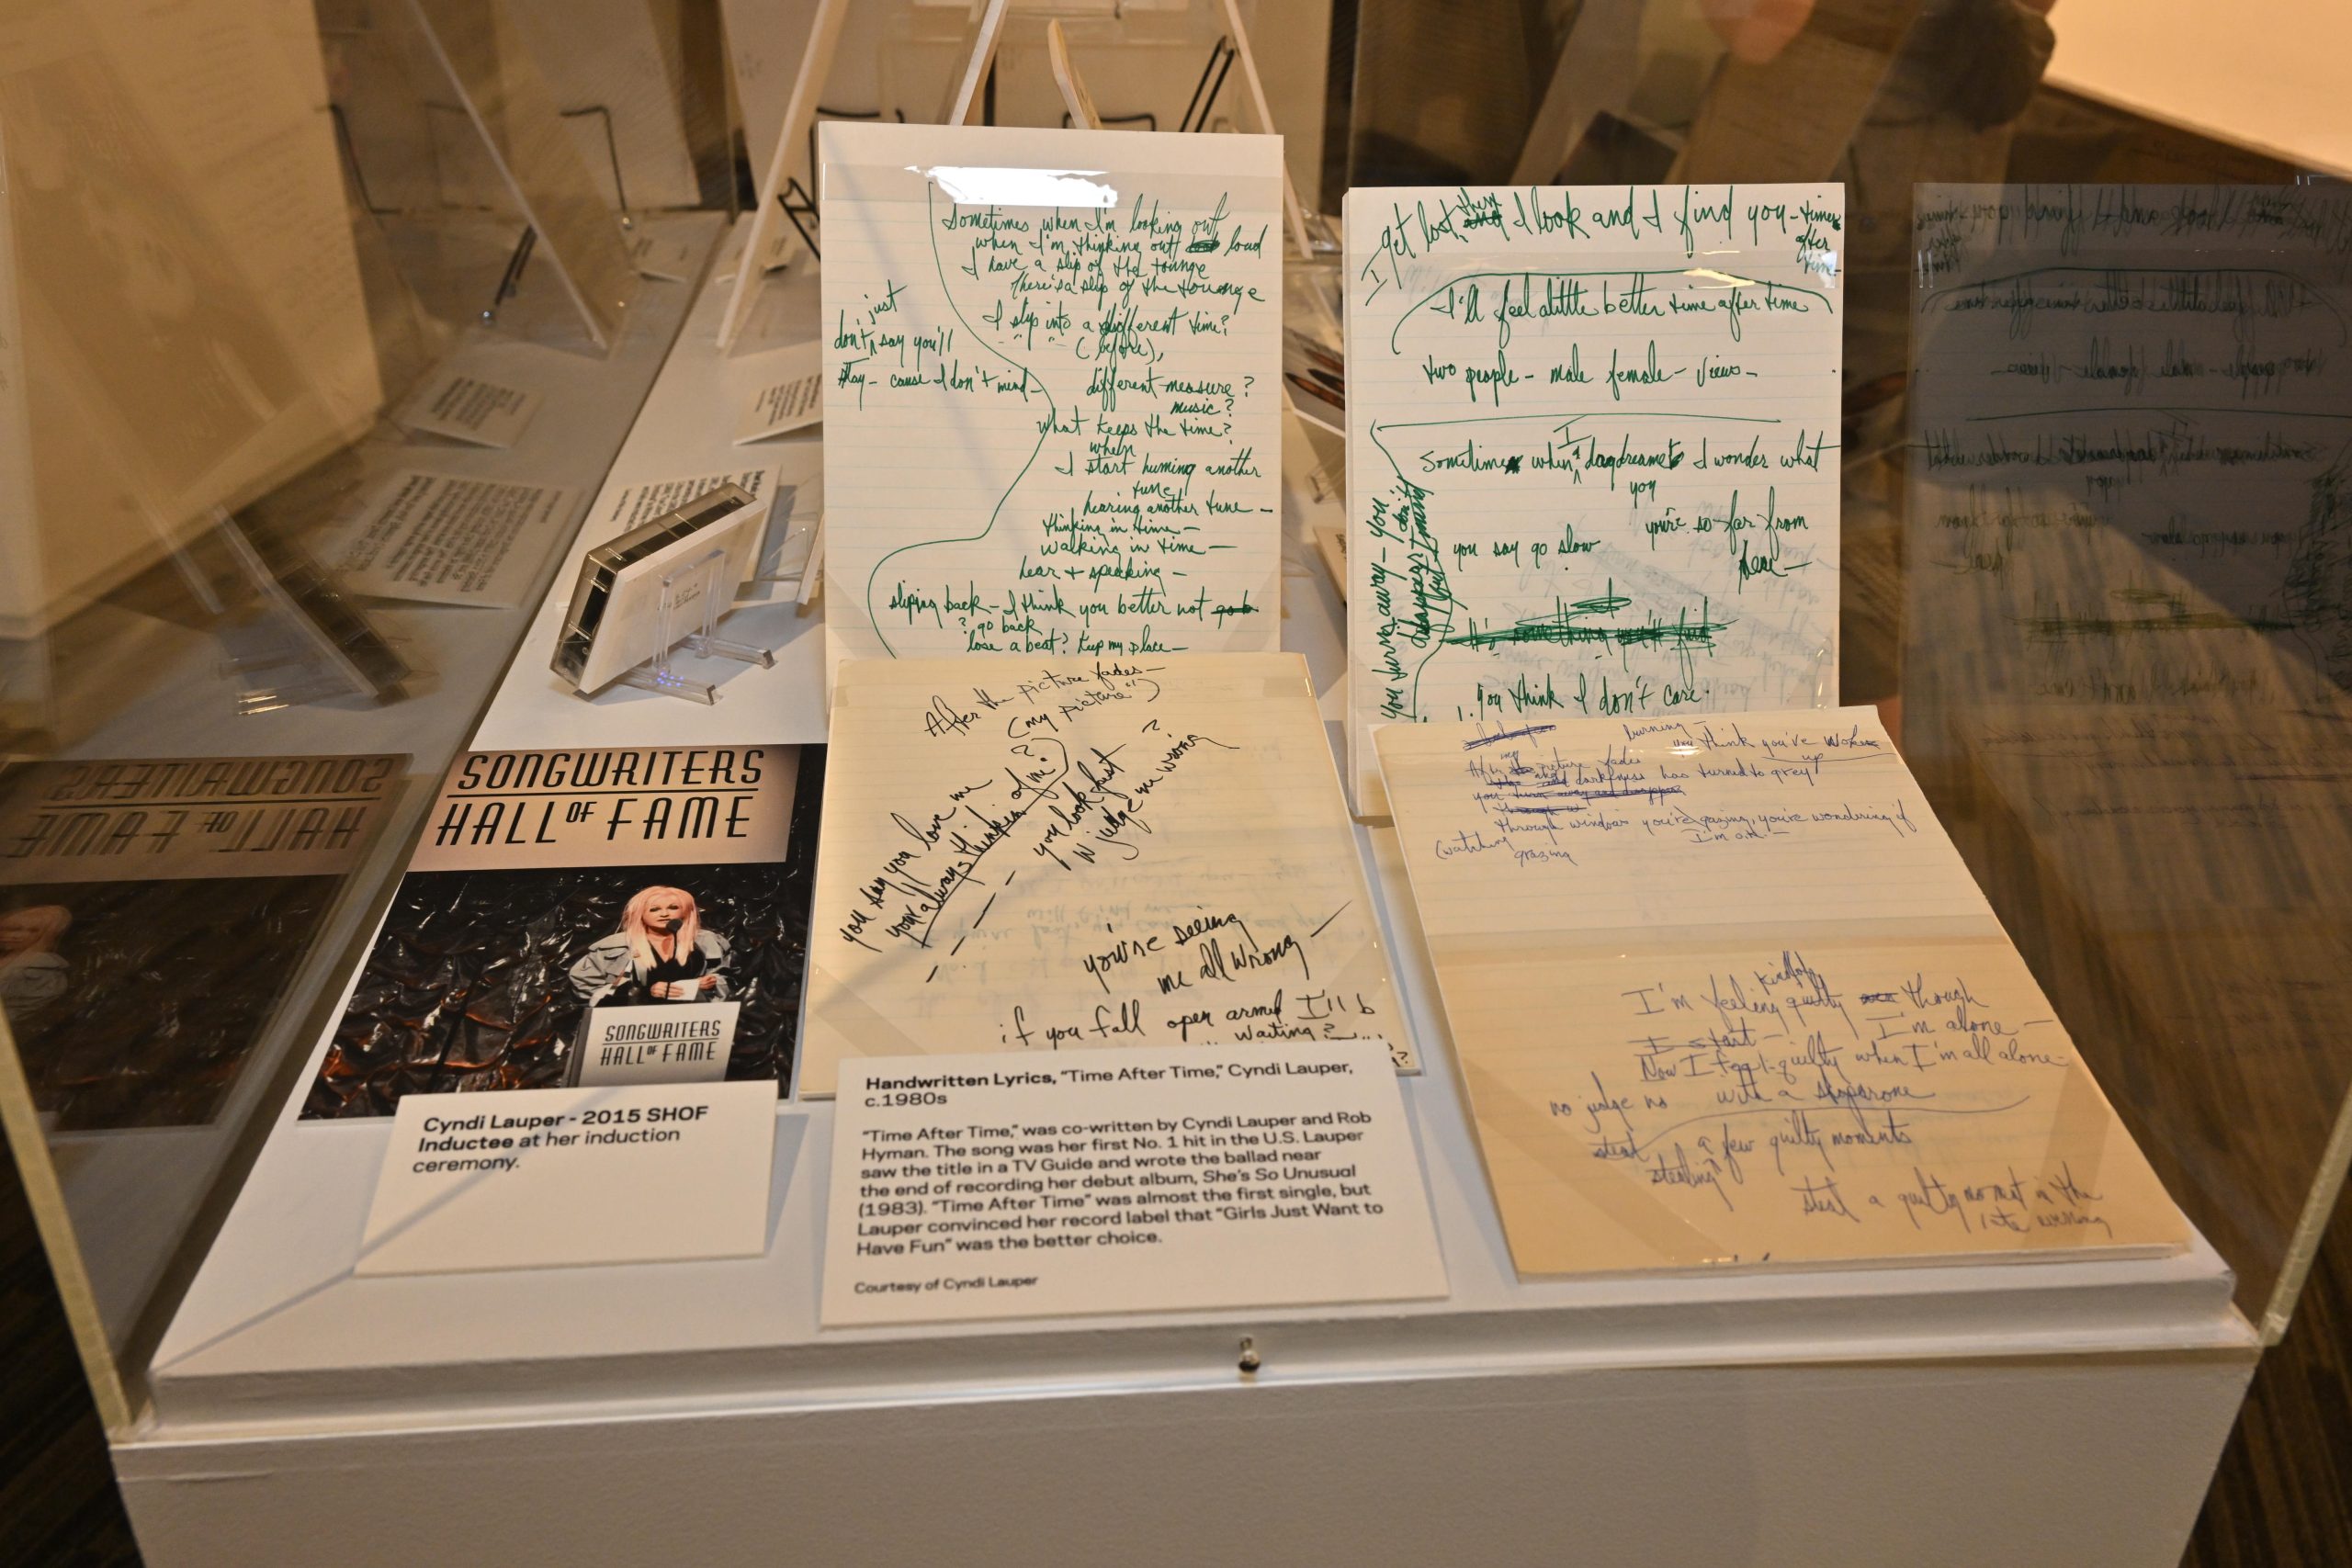 Sometimes when I'm looking out
when I'm thinking out loud
I have a slip of the tounge
There's a slip of the tounge
just
don't say you'll
stay - cause I don't mind -
I slip into a different time?
(before),
different measure?
music?
what keeps the time?
when
I start huming another
tune
hearing another tune -
thinking in time -
walking in time -
hear + speaking -
sliping back - I think you better not go b
? go back
lose a beat? Keep my place -
I get lost, then and I look and I find you - times
after
time -
I'll feel alittle better time after time
two people - male female - views -
I
Sometimes when daydreamed I wonder what
you
you say go slow
you're so far from
here -
you turn away - you don't
It's something you'll find
you think I don't care.
After the picture fades -
(my picture?)
you say you love me
your always thinkin of me?
you look fast
n judge me wrong
you're seeing
me all wrong -
if you fall open armed I'll b
waiting?
burning -
you think you've
up
my
picture fades
and darkness has turned to grey
you turn away and disappear
through w
through windows you're gazing, you're wondering if
I'm o.k. -
(watching
grazing
kindof
I'm feeling guilty though
I start - I'm alone -
Now I feel guilty when I'm all alone -
no judge no with a
steal a few guilty moments
stealing
steal a guilty in the
late
SONGWRITERS
HALL OF FAME
SONGWRITERS
HALL OF FAME
Cyndi Lauper - 2015 SHOF
Inductee at her induction
ceremony.
Handwritten Lyrics, "Time After Time," Cyndi Lauper,
c.1980s
"Time After Time," was co-written by Cyndi Lauper and Rob
Hyman. The song was her first No. 1 hit in the U.S. Lauper
saw the title in a TV Guide and wrote the ballad near
the end of recording her debut album, She's So Unusual
(1983). "Time After Time" was almost the first single, but
Lauper convinced her record label that "Girls Just Want to
Have Fun" was the better choice.
Courtesy of Cyndi Lauper